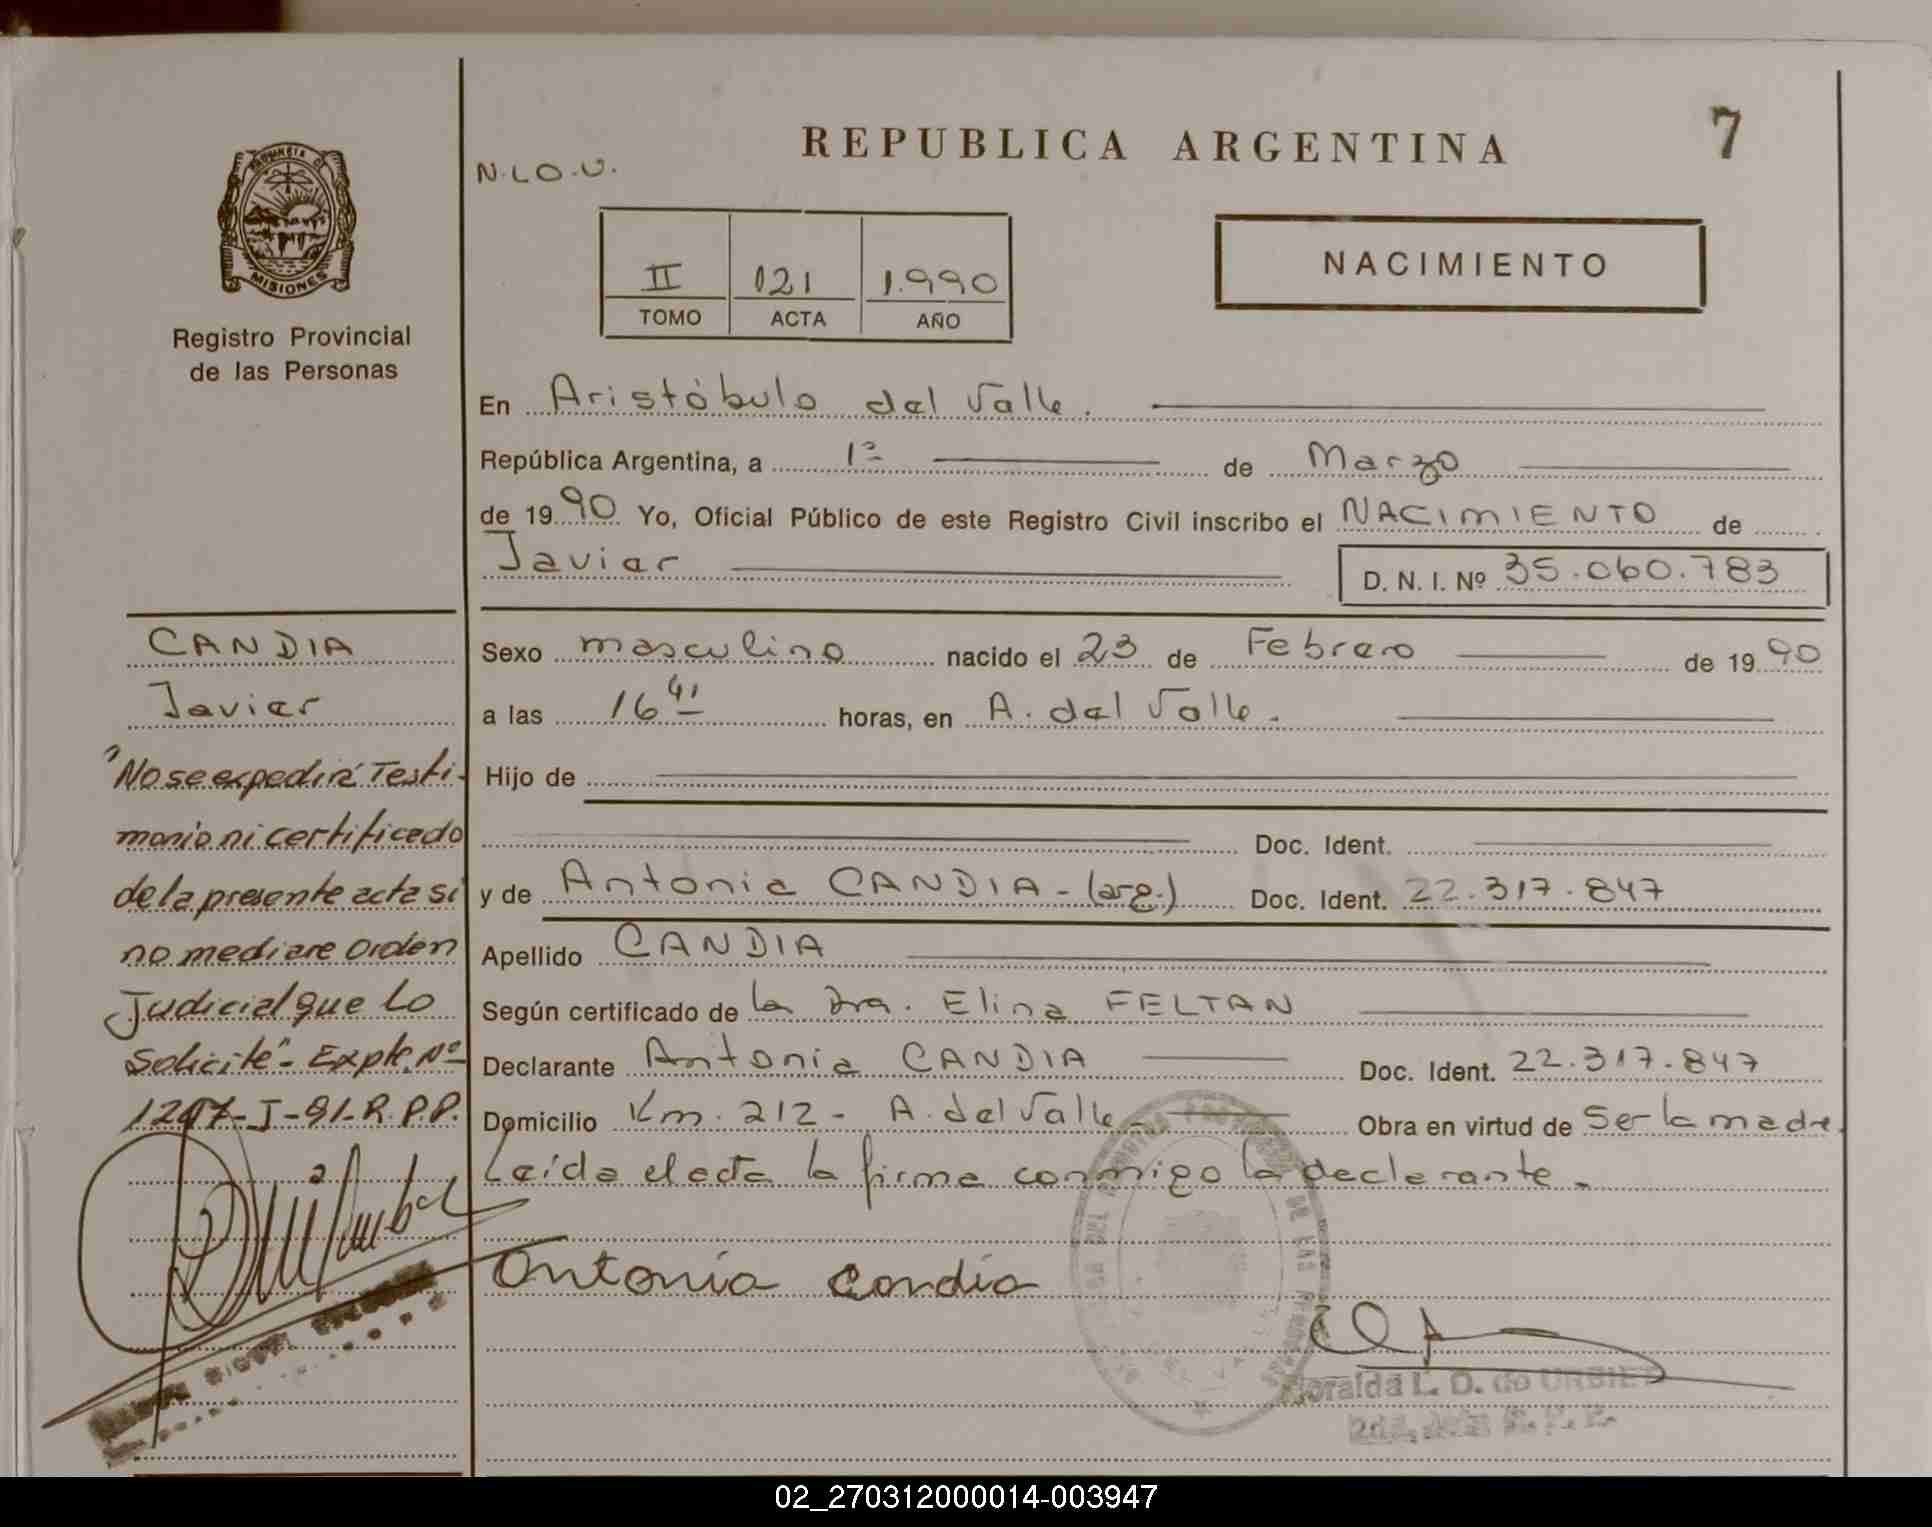 REPUBLICA ARGENTINA
7
N.L.O.U.
PROVINCIA DE
MISIONES
Registro Provincial
de las Personas
II 121 1.990
TOMO ACTA AÑO
NACIMIENTO
En Aristóbulo del Valle.
República Argentina, a 1º de Marzo
de 1990 Yo, Oficial Público de este Registro Civil inscribo el NACIMIENTO de
Javier D. N. I. Nº 35.060.783
Sexo masculino nacido el 23 de Febrero de 1990
a las 16 41 horas, en A. del Valle.
Hijo de
Doc. Ident.
y de Antonia CANDIA - (arg.) Doc. Ident. 22.317.847
Apellido CANDIA
Según certificado de la Dra. Elina FELTAN
Declarante Antonia CANDIA Doc. Ident. 22.317.847
Domicilio Km. 212 - A. del Valle - Obra en virtud de Ser la madre.
Leída el acta la firma conmigo la declarante.
Antonia candia
L. D. de
CANDIA
Javier
"No se expedirá Testi-
monio ni certificado
de la presente acta si
no mediare orden
Judicial que lo
Solicite" - Expte. Nº
1247-J-91-R.P.P.
02_270312000014-003947